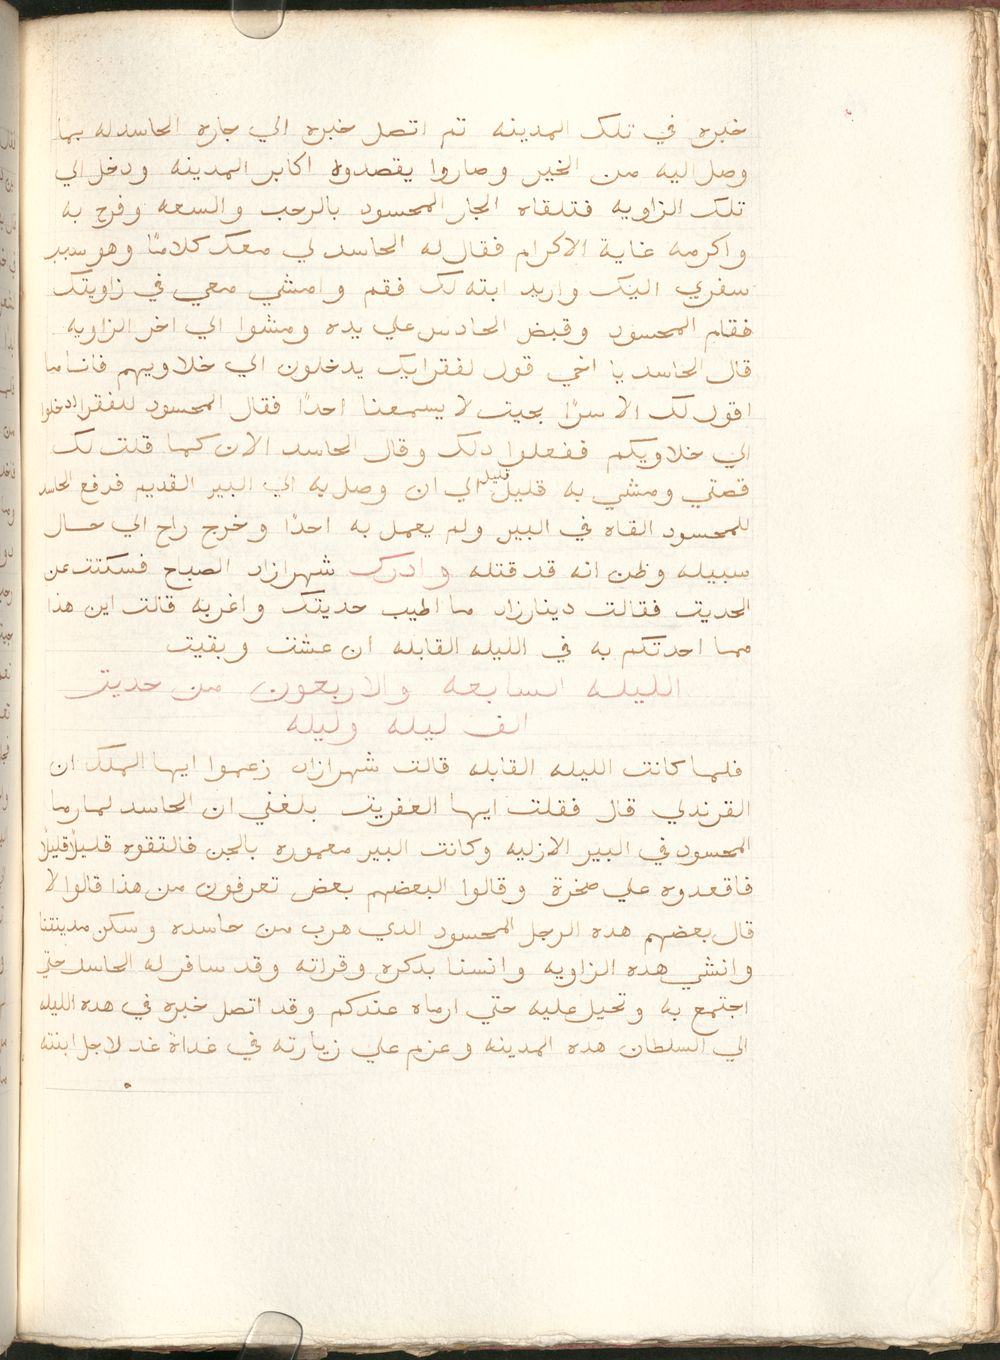 خبره في تلك المدينه تم اتصل خبره الي جاره الحاسد له بما
وصل اليه من الخير وصاروا يقصدوه اكابر المدينه ودخل الي
تلك الزاويه فتلقاه الجار المحسود بالرحب والسعه وفرح به
واكرمه غاية الاكرام فقال له الحاسد لي معك كلامًا وهو سبب
سفري اليك واريد ابته لك فقم وامشي معي في زاويتك
فقام المحسود وقبض الحادس علي يده ومشوا الي اخر الزاويه
قال الحاسد يا اخي قول لفقرايك يدخلون الي خلاويهم فانا ما
اقول لك الا سرًا بحيت لا يسمعنا احدًا فقال المحسود للفقرا ادخلوا
الي خلاويكم ففعلوا دلك وقال الحاسد الان كما قلت لك
قصتي ومشي به قليل قليل الي ان وصل به الي البير القديم فرفع الحاسد
للمحسود القاه في البير ولم يعمل به احدًا وخرج راح الي حال
سبيله وظن انه قد قتله وادرك شهرازاد الصباح فسكتت عن
الحديت فقالت دينارزاد ما اطيب حديتك واغربه قالت اين هذا
مما احدتكم به في الليله القابله ان عشت وبقيت
الليله السابعه والاربعون من حديت
الف ليله وليله
فلما كانت الليله القابله قالت شهرازاد زعموا ايها الملك ان
القرندلي قال فقلت ايها العفريت بلغني ان الحاسد لما رما
المحسود في البير الازليه وكانت البير معموره بالجن فالتقوه قليلًا قليلًا
فاقعدوه علي صخرة وقالوا البعضهم بعض تعرفون من هذا قالوا لا
قال بعضهم هده الرجل المحسود الدي هرب من حاسده وسكن مدينتنا
وانشي هده الزاويه وانسنا بدكره وقراته وقد سافر له الحاسد حتي
اجتمع به وتحيل عليه حتي ارماه عندكم وقد اتصل خبره في هده الليله
الي السلطان هده المدينه وعزم علي زيارته في غداة غد لاجل ابنته